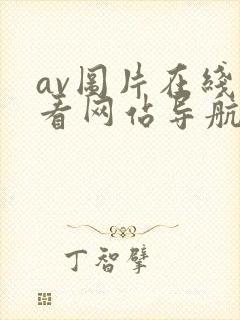 av图片在线
看网站导航
丁智擘